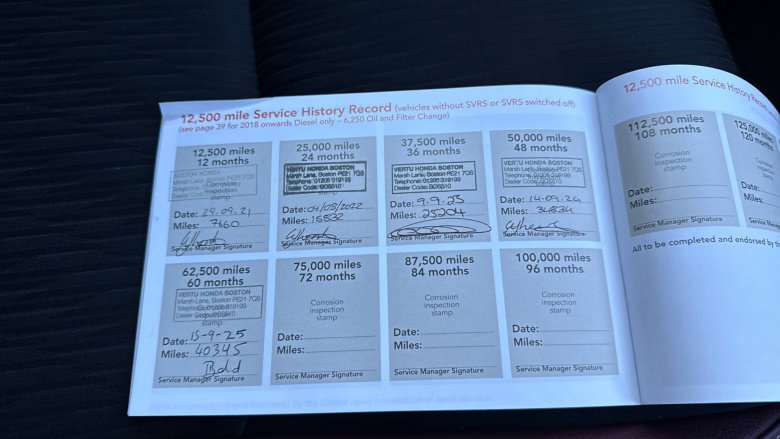 12,500 mile Service History Record (vehicles without SVRS or SVRS switched off)
(see page 39 for 2018 onwards Diesel only – 6,250 Oil and Filter Change)
12,500 miles
12 months
Corrosion
Date: 29.09.21
Miles: 7660
Service Manager Signature
25,000 miles
24 months
VERTU HONDA BOSTON
Marsh Lane, Boston PE21 7QS
Telephone: 01205 319199
Dealer Code: BOS510
Date: 04/08/2022
Miles: 15832
Service Manager Signature
37,500 miles
36 months
VERTU HONDA BOSTON
Marsh Lane, Boston PE21 7QS
Telephone: 01205 319199
Dealer Code: BOS510
Date: 9.9.23
Miles: 25204
Service Manager Signature
50,000 miles
48 months
VERTU HONDA BOSTON
Marsh Lane, Boston PE21 7QS
Date: 14.09.24
Miles:
Service Manager Signature
62,500 miles
60 months
VERTU HONDA BOSTON
Marsh Lane, Boston PE21 7QS
stamp
Date: 15-9-25
Miles: 40345
Service Manager Signature
75,000 miles
72 months
Corrosion
inspection
stamp
Date:
Miles:
Service Manager Signature
87,500 miles
84 months
Corrosion
inspection
stamp
Date:
Miles:
Service Manager Signature
100,000 miles
96 months
Corrosion
inspection
stamp
Date:
Miles:
Service Manager Signature
12,500 mile Service History
112,500 miles
108 months
Corrosion
inspection
stamp
Date:
Miles:
Service Manager Signature
125,000
120 months
Date:
Miles:
Service
All to be completed and endorsed by the